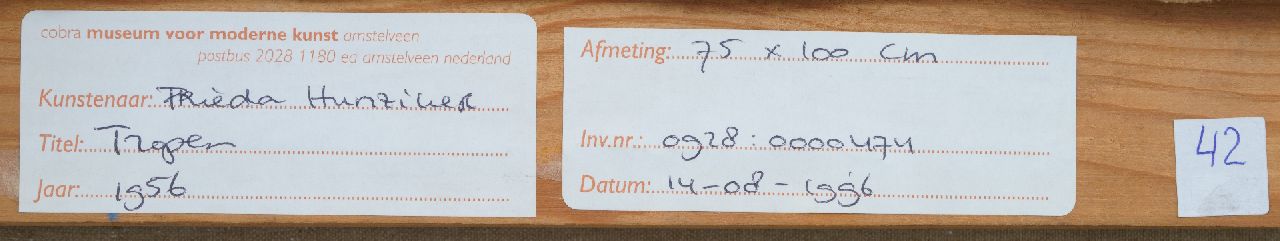 cobra museum voor moderne kunst amstelveen
postbus 2028 1180 ea amstelveen nederland
Kunstenaar: Frieda Hunziker
Titel: Tropen
Jaar: 1956
Afmeting: 75 x 100 cm
Inv.nr.: 0928:0000474
Datum: 14-08-1996
42